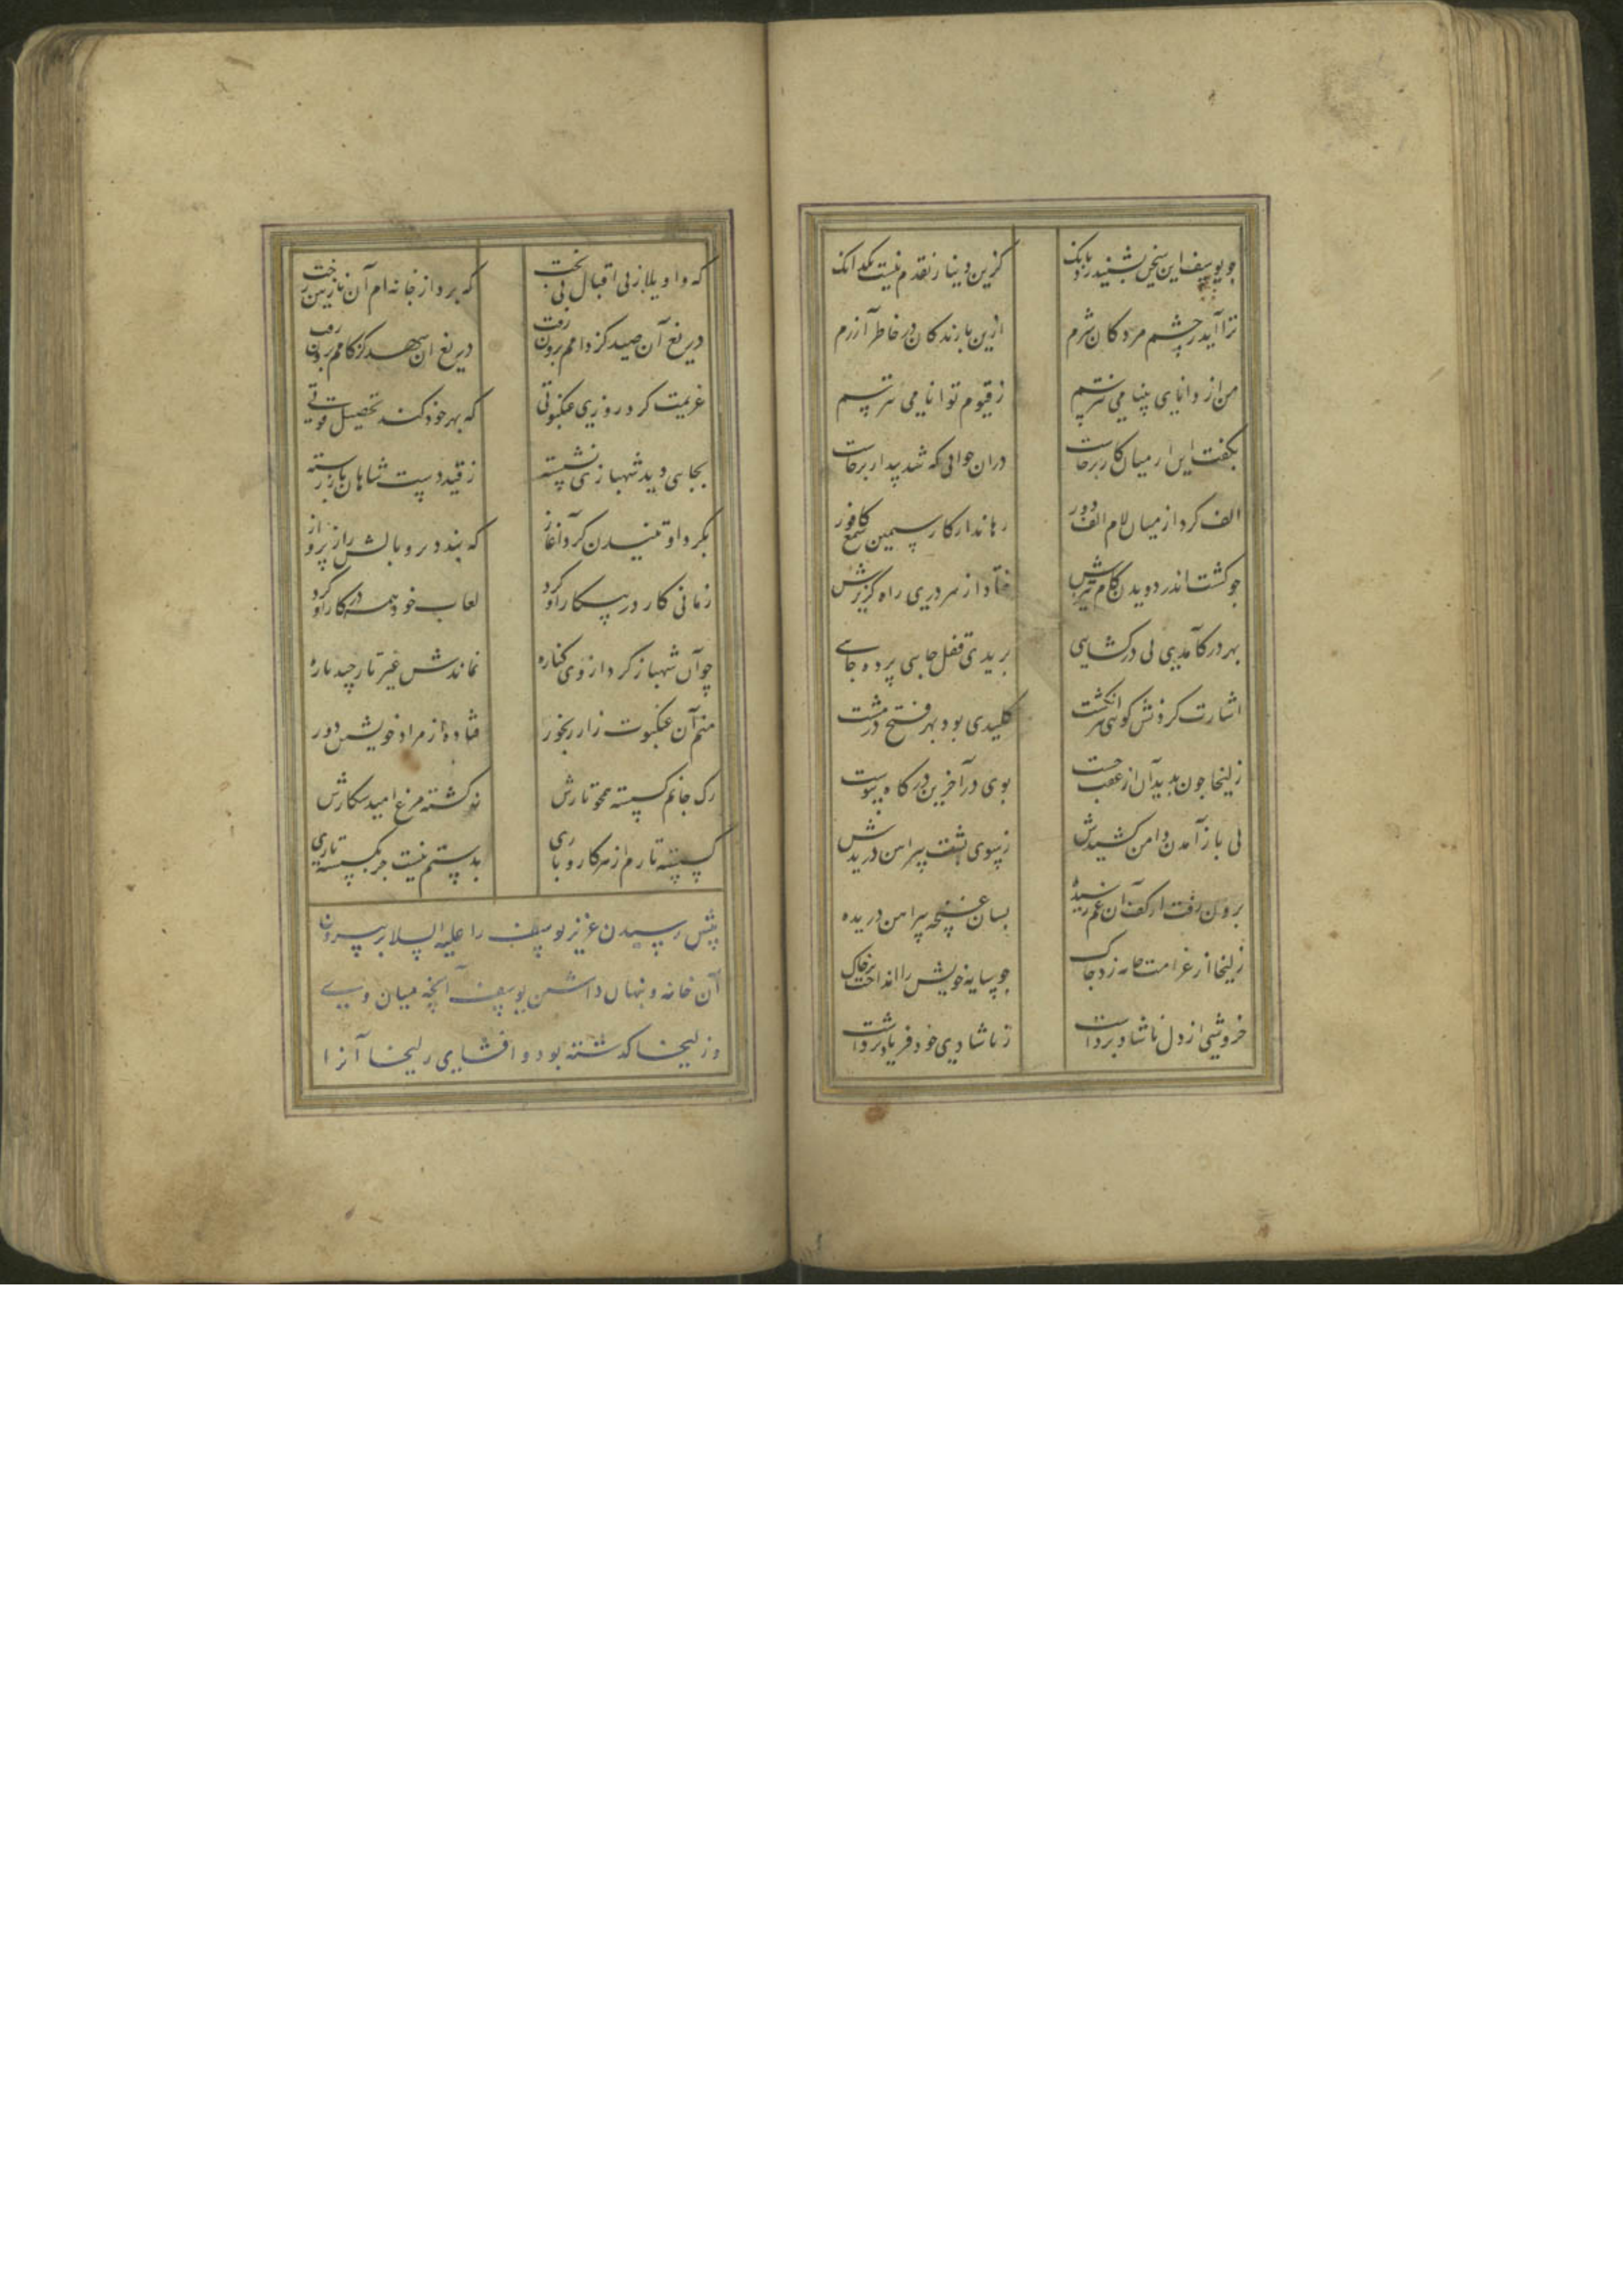 چو یوسف این سخن بشنید زد بانک کزین دینار نقدم نیست یکدانک
ترا آید بچشم مردکان شرم ازین بازندکان در خاطر آزرم
من از دانای بینا می نترسم ز قیوم توانا می نترسم
بکفت این از میان کار برخاست دران خوابی که شد بیدار برخاست
الف کرد از میان لام الف دور رهاند از کار سیمین شمع کافور
چو کشت اندر دویدن کام تیزش کشاد از هر دری راه کریزش
بهر در کامدی بی در کشایی بریدی قفل جایی پرده جایی
اشارت کردنش کویی بانکشت کلیدی بود بهر فتح در مشت
زلیخا چون بدید آن از عقب جست بوی در آخرین درکاه پیوست
پی باز آمدن دامن کشیدش ز سوی پشت پیراهن دریدش
برون رفت از کف آن غم رسیده بسان غنچه پیراهن دریده
زلیخا از غرامت جامه زد چاک چو سایه خویش را انداخت بر خاک
خروشی از دل ناشاد برداشت ز ناشادی خود فریاد برداشت
که واویلا ز بی اقبالی بخت که برد از خانه ام آن نازنین رخت
دریغ آن صید کز دامم برون رفت دریغ آن شهد کز کامم برون رفت
عزیمت کرد روزی عنکبوتی که بهر خود کند تحصیل قوتی
بجایی دید شهبازی نشسته ز قید دست شاهان باز رسته
بکرد او تنیدن کرد آغاز که بندد پر و بالش را ز پرواز
زمانی کار در پیکار او کرد لعاب خود همه در کار او کرد
چو آن شهباز کرد از وی کناره نماندش غیر تار چند پاره
منم آن عنکبوت زار رنجور فتاده از مراد خویشتن دور
رک جانم کسسته همچو تارش نکشته مرغ امیدی شکارش
کسسته تارم از هر کار و باری بدستم نیست جز بکسسته تاری
پیش رسیدن عزیز یوسف را علیه السلام بیرون
آن خانه و پنهان داشتن یوسف آنچه میان وی
و زلیخا کذشته بود و افشای زلیخا آنرا